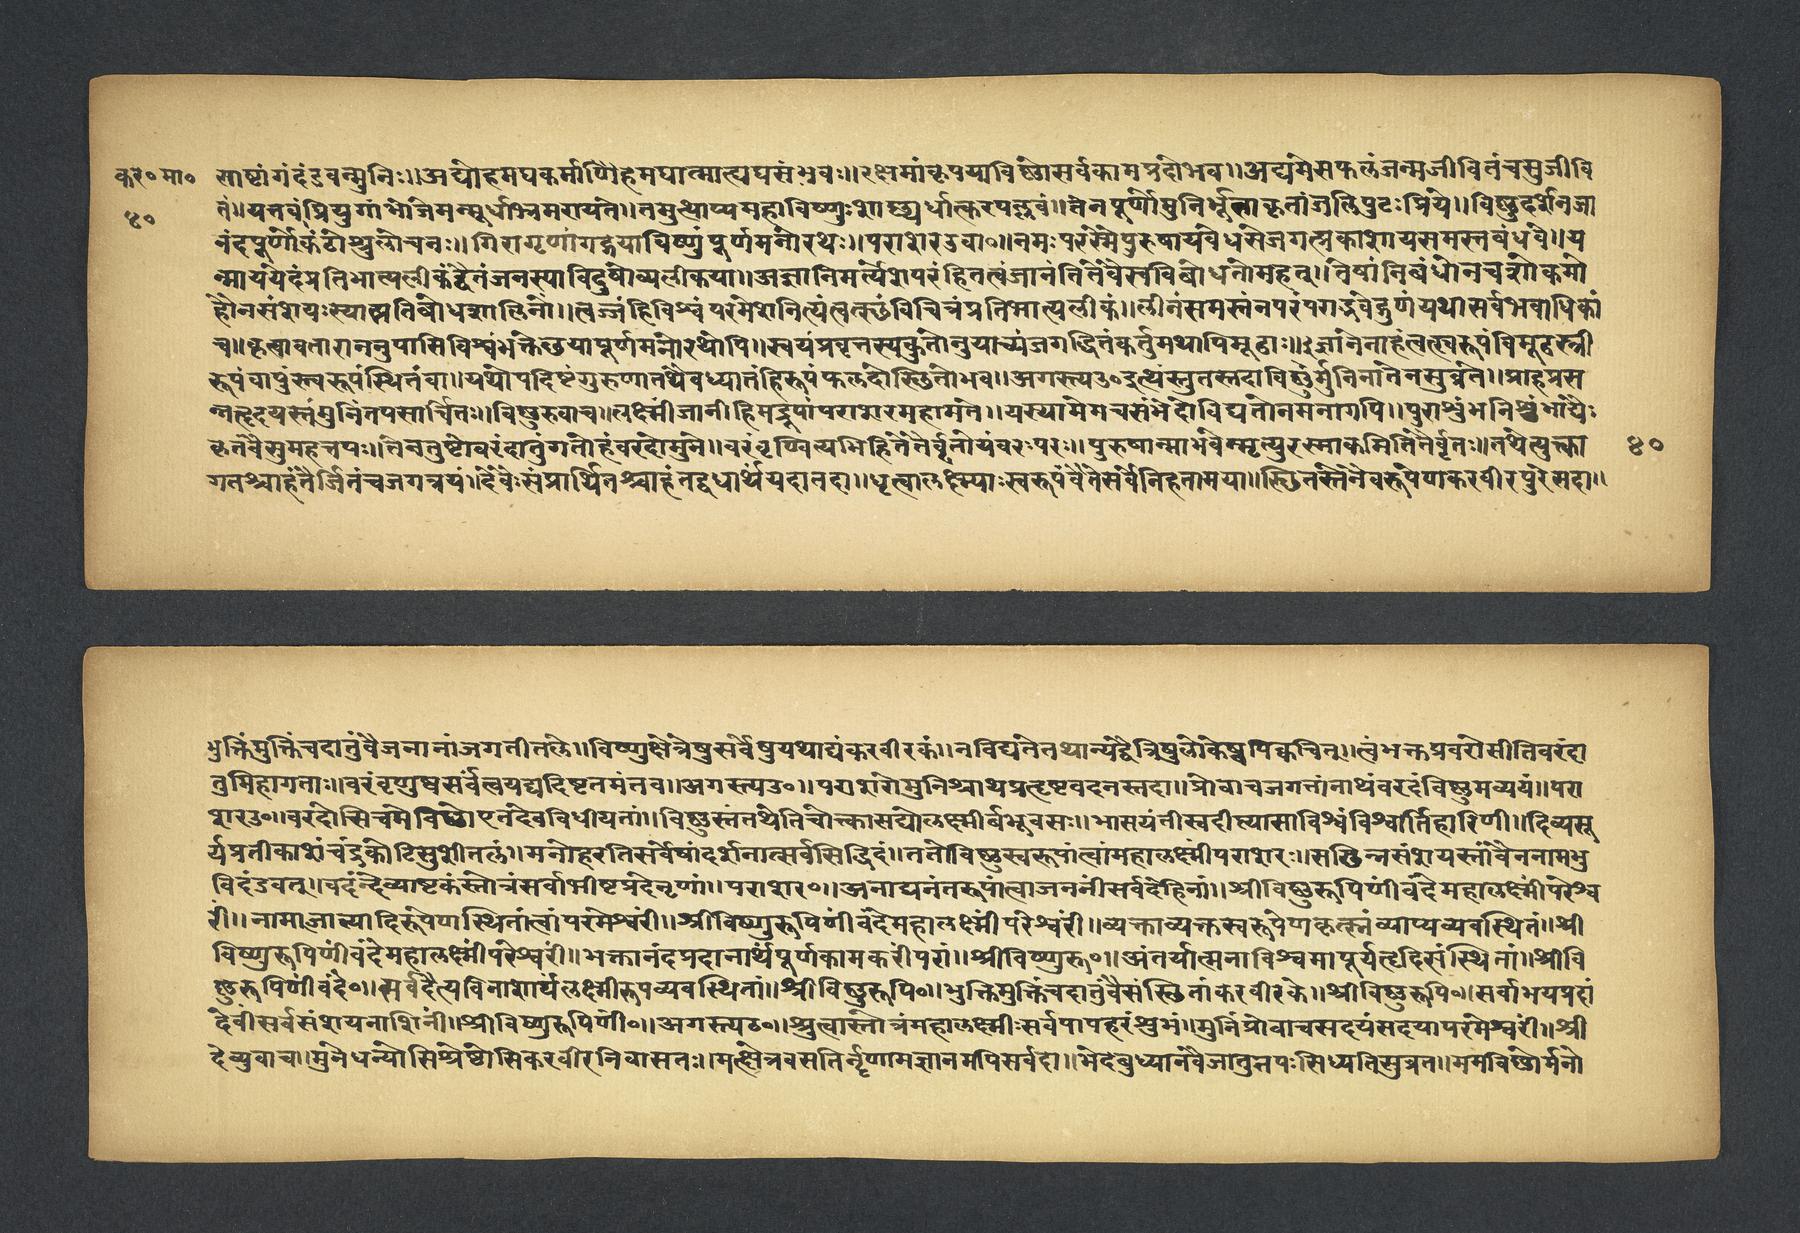 कर॰मा॰
४०
साष्टांगंदंडवन्मुनिः॥अद्योहमपकर्माणिहमपात्मात्यपसंभवः॥रक्षमांकृपयाविष्णोसर्वकामप्रदोभव॥अद्यमेसफलंजन्मजीवितंचसुजीवि
तं॥यत्तवांघ्रियुगांभोजेमन्मूर्धाभ्रमरायते॥तमुत्थाप्यमहाविष्णुः मुनिर्भूत्वाकृतांजलिपुटःप्रिये॥विष्णुदर्शनजा
नंदपूर्णोकंठोश्रुलोचनः॥गिरागृणांगद्गदयाविष्णुंपूर्णमनोरथः॥पराशरउवा॰॥नमःपरस्मैपुरुषायवेधसेजगत्प्रकाशायसमस्तबंधवे॥य
न्माययेदंप्रतिभात्यलीकंद्वैतंजनस्याविदुषोव्यलीकया॥अज्ञानिमर्त्येशपरंहितत्वंजानंतितेवैस्वविबोधतोमहत्॥तेषांनिबंधोनचशोकमो
होनसंशयःस्यात्प्रतिबोधशालिनो॥त्वज्जंहिविश्वंपरमेशनित्यंत्वत्स्छंविचित्रंप्रतिभात्यलीकं॥लीनंसमस्तंनपरंपराद्भवेद्गुणंयथासर्वभवाधिकां
च॥कृत्वावतारान्ननुपासिविश्वंभक्तेछयापूर्णमनोरथोपि॥स्वयंप्रवृत्तस्यकुतोनुयाच्यंजगद्धितंकर्तुमथापिमूढाः॥ज्ञानेनाहंत्वत्स्वरूपंविमूढस्त्री
रूपंवापुंस्त्वरूपंस्थितंवा॥यथोपदिष्टंगुरुणातथैवध्यातंहिरूपंफलदोस्छितोभव॥अगस्त्यउ॰इत्थंस्तुतस्तदाविष्णुर्मुनिनातेनसुव्रते॥प्राहप्रस
न्नहृदयस्तंमुनिंतपसार्चितः॥विष्णुरुवाच॥लक्ष्मींजानीहिमद्रूपांपराशरमहामते॥यस्यामेमचसंभेदोविद्यतोनमनागपि॥पुराशुंभनिशुंभाद्यैः
कृतंवैसुमहत्तपः॥तेनतुष्टोवरंदातुंगतोहंवरदोमुने॥वरंवृण्वित्यभिहितेतैर्वृतोयंवरःपरः॥पुरुषान्माभवेन्मृत्युरस्माकमितितैर्वृतः॥तथेत्युक्त्वा
४०
गतश्चाहंतैर्जितंचजगत्रयं॥देवैःसंप्रार्थितश्चाहंतद्वधार्थयदातदा॥धृत्वालक्ष्म्याःस्वरूपंवैतेसर्वेनिहतामया॥स्छितस्तेनैवरूपेणकरवीरपुरेसदा॥
भुक्तिंमुक्तिंचदातुंवैजनानांजगतीतले॥विष्णुक्षेत्रेषुसर्वेषुयथाद्यंकरवीरकं॥नविद्यतेतथान्यद्वैत्रिषुलोकेष्वपिक्वचित्॥त्वंभक्तप्रवरोसीतिवरंदा
तुमिहागताः॥वरंवृणुष्वसर्वत्वयद्यदिष्टतमंतव॥अगस्त्यउ॰॥पराशरोमुनिश्चाथप्रहृष्टवदनस्तदा॥प्रोवाचजगतांनाथंवरदंविष्णुमव्ययं॥परा
शरउ॰॥वरदोसिचमेविष्णोएतदेवविधीयतां॥विष्णुस्तंतथेतिचोक्त्वासद्योलक्ष्मीर्बभूवसः॥भासयंतीस्वदीप्त्यासाविश्वंविश्वार्तिहारिणी॥दिव्यसू
र्यप्रतीकाशंचंद्रकोटिसुशीतलं॥मनोहरतिसर्वेषांदर्शनात्सर्वसिद्धिदं॥ततोविष्णुस्वरूपांत्वांमहालक्ष्मींपराशरः॥सछिन्नसंशयस्तांवैननामभु
विदंडवत्॥वदंन्देव्याष्टकंस्तोत्रंसर्वाभीष्टप्रदेनृणां॥पराशर॰॥अनाद्यनंतरूपांत्वाजननींसर्वदेहिनां॥श्रीविष्णुरूपिणींवंदेमहालक्ष्मींपरेश्व
रीं॥नामाजात्यादिरूपेणस्थितांत्वांपरमेश्वरीं॥श्रीविष्णुरूपिणींवंदेमहालक्ष्मींपरेश्वरीं॥व्यक्ताव्यक्तस्वरूपेणकृत्स्नंव्याप्यव्यवस्थितं॥श्री
विष्णुरूपिणींवंदेमहालक्ष्मींपरेश्वरीं॥भक्तानंदप्रदानार्थंपूर्णकामकरींपरां॥श्रीविष्णुरू॰॥अंतर्यात्मनाविश्वमापूर्यहृदिसंस्थितां॥श्रीवि
ष्णुरूपिणींवंदे॰॥सर्वदैत्यविनाशार्थंलक्ष्मीरूपव्यवस्थितां॥श्रीविष्णुरूपि॰॥भुक्तिमुक्तिंचदातुंवैसंस्छितांकरवीरके॥श्रीविष्णुरूपि॰॥सर्वाभयप्रदां
देवींसर्वसंशयनाशिनीं॥श्रीविष्णुरूपिणीं॰॥अगस्त्यउ॰॥श्रुत्वास्तोत्रंमहालक्ष्मीःसर्वपापहरंशुभं॥मुनिंप्रोवाचसदयंसदयापरमेश्वरी॥श्री
देव्युवाच॥मुनेधन्योसिश्रेष्टोसिकरवीरनिवासतः॥मत्क्षेत्रवसतिर्नृणामज्ञानमपिसर्वदा॥भेदेबुध्यानवैजातुतपःसिध्यतिसुव्रत॥ममविष्णोर्मनो